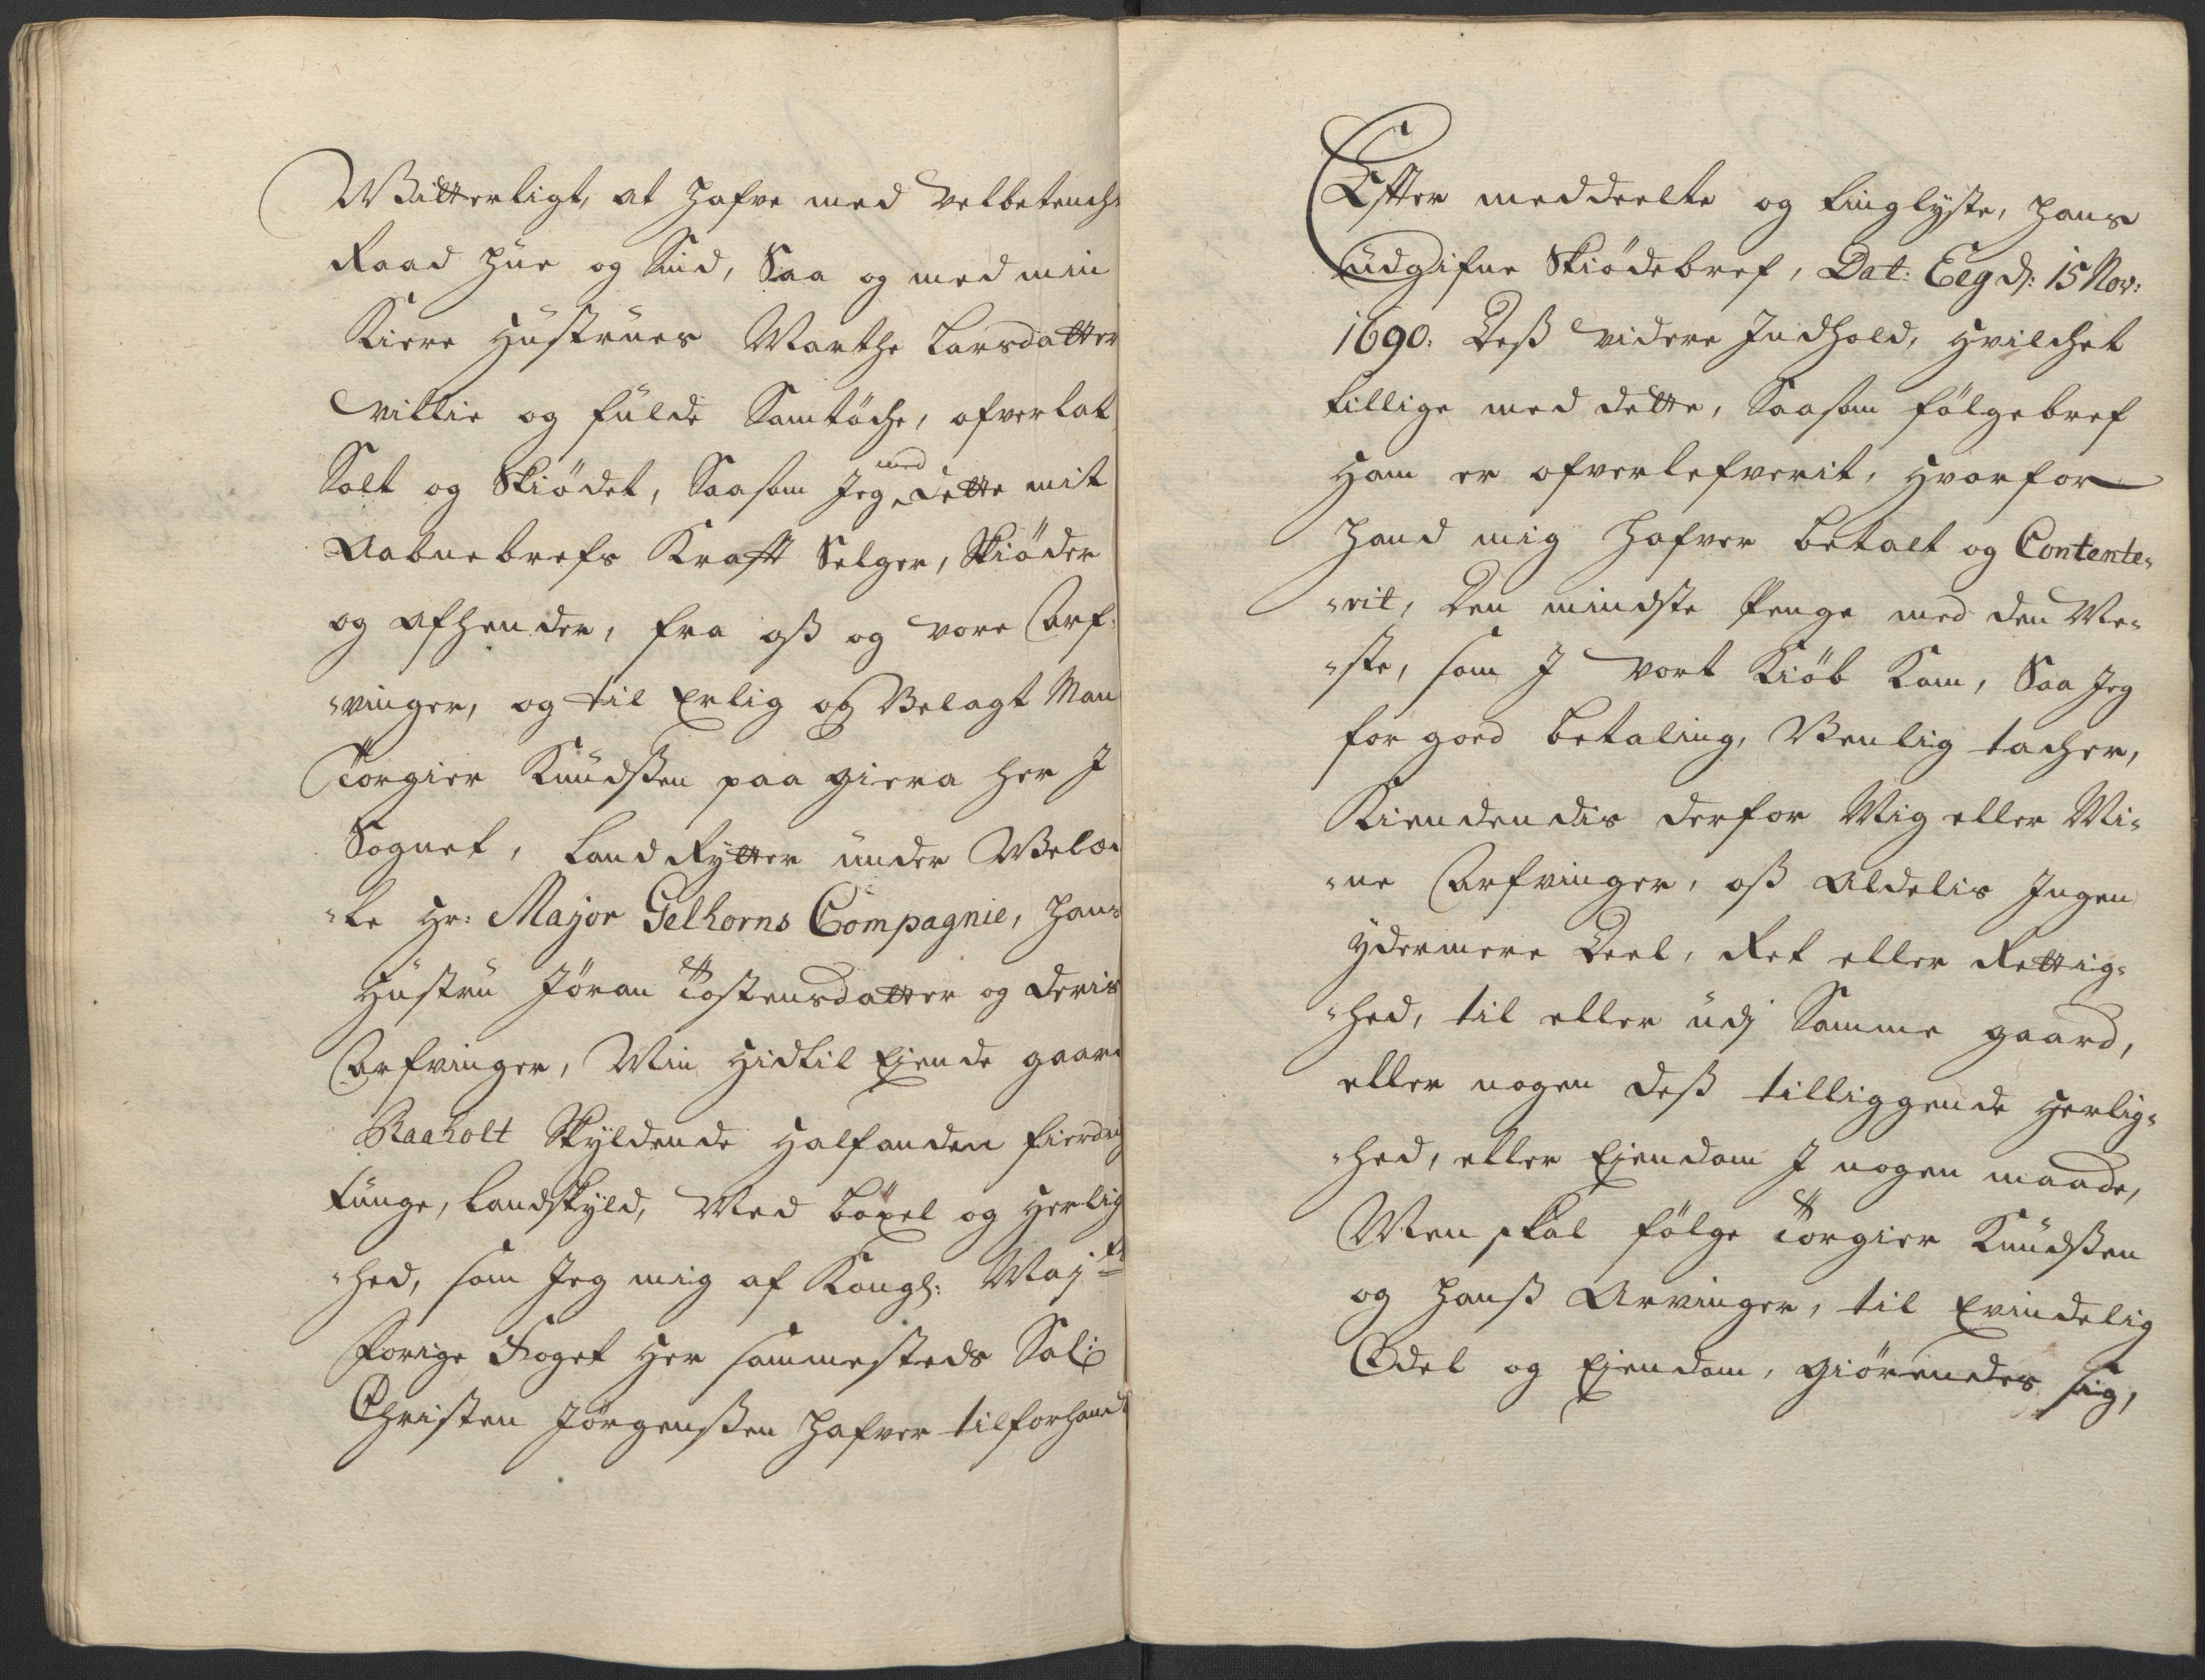 Witterligt, at hafve med velbetencht
Raad hue og Sind, Saa og med min
Kiere Hustrues Marthe Larsdatter
villie og fulde Samtöche, ofverlat
Solt og Skiödet, Saasom Jeg med dette mit
Aabnebrefs Krafft Selger, Skiöder
og afhender, fra oß og vore Arf-
vinger, og til Erlig og Velagt Man
Torgier Knudßen paa giera her J
Sognet, Land Rytter under Velæd
le Hr: Major Gelhorns Compagnie, hans
Hustru Jöran Tostensdatter og deris
Arfvinger, Min Hidtil Ejende gaard
Raaholt Skyldende halfanden fierding
tunge, landskyld, Med böxel og Herlig
hed, som Jeg mig af Kongl: Maj:ts
Forige Foget Her sammesteds Sal:
Christen Jörgenßen hafver tilforhandl
Effter meddeelte og tinglyste, hans
udgifne Skiödebref, Dat: Eeg d: 15 Nov:
1690. Deß videre Indhold, Hvilchet
tillige med dette, Saasom fölgebref
Ham er ofverlefverit, Hvorfor
hand mig hafver betalt og Contente-
rit, Den mindste Penge med den Me-
ste, som J vort Kiöb Kom, Saa Jeg
for goed betaling, Venlig tacher,
Kiendendis derfor Mig eller Mi-
ne Arfvinger, oß Aldelis Ingen
ydermere Deel, Ret eller Rettig-
hed, til eller udj Samme gaard,
eller nogen deß tilliggende Herlig-
hed, eller Ejendom J nogen maade,
Men skal fölge Torgier Knudßen
og hanß Arvinger, til Evindelig
Odel og Ejendom, giörendes sig,